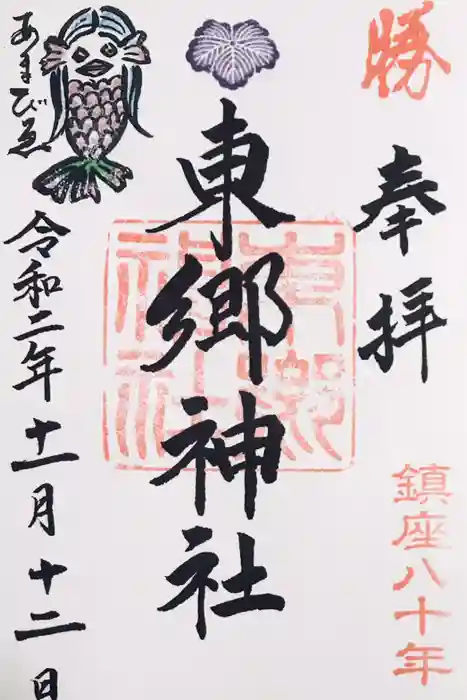 勝
奉拝
鎮座八十年
東郷神社
東郷神社
令和二年十一月十二日
あまびゑ